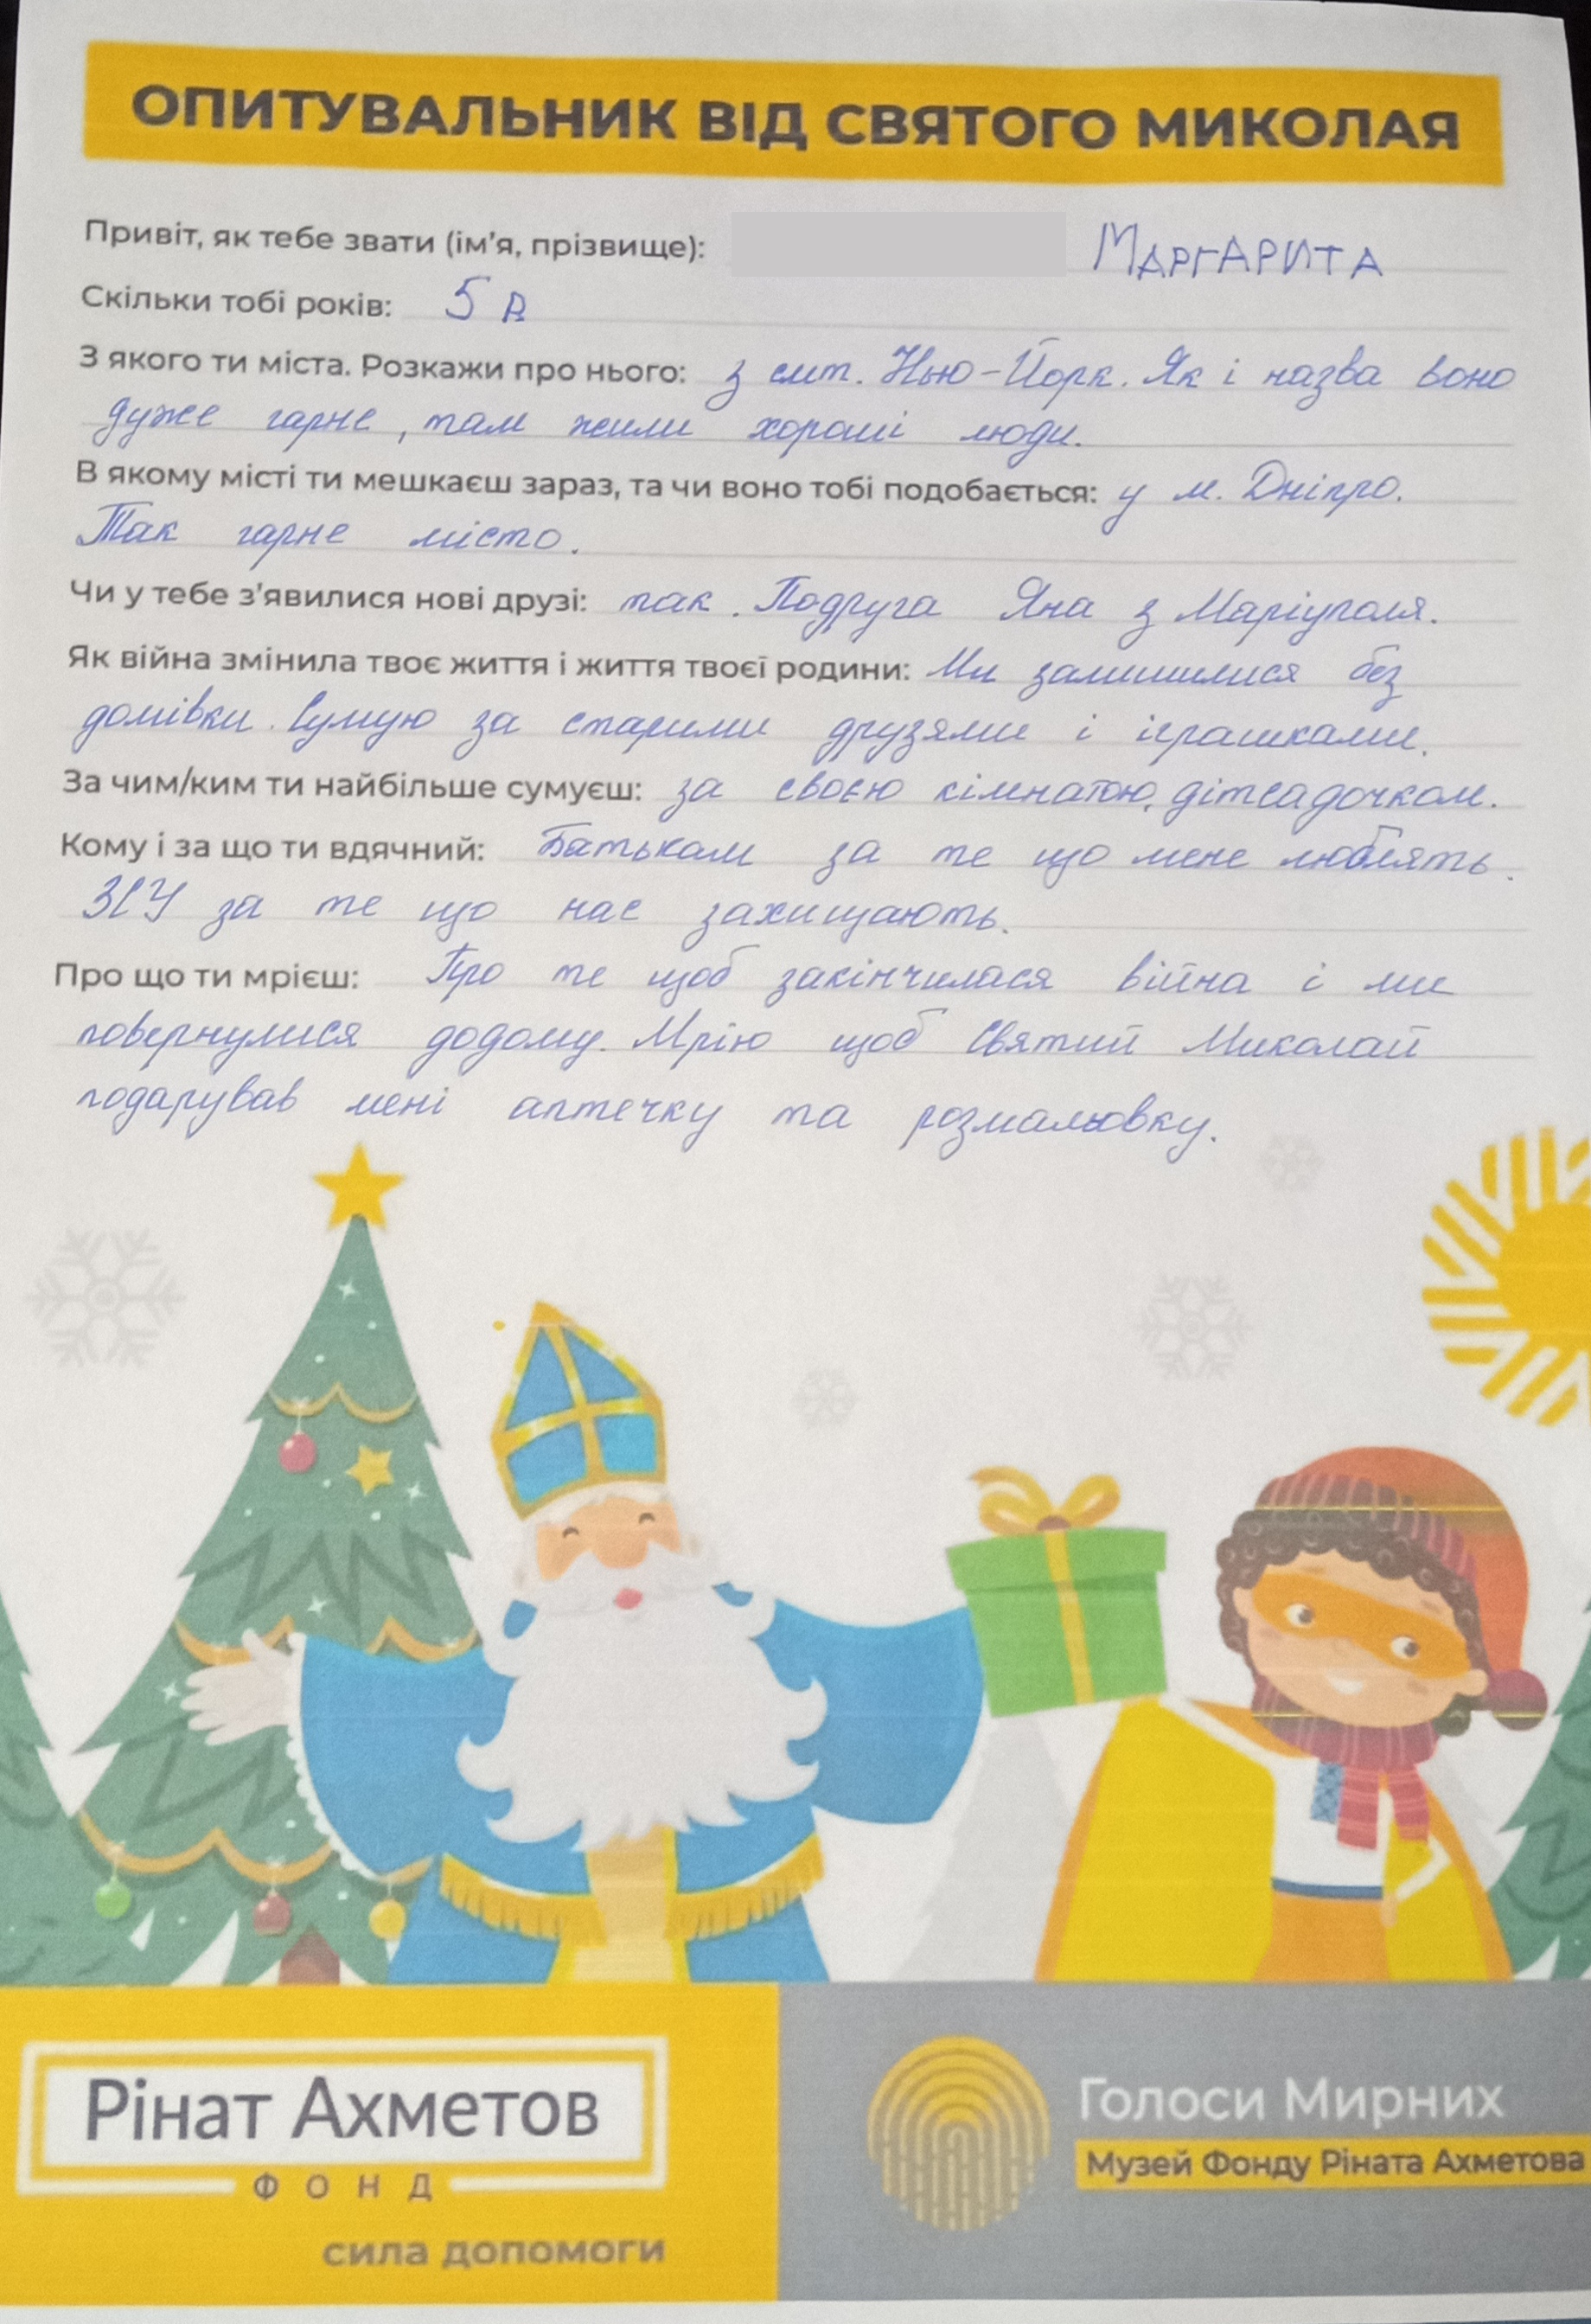 ОПИТУВАЛЬНИК ВІД СВЯТОГО МИКОЛАЯ
Привіт, як тебе звати (ім'я, прізвище): МАРГАРИТА
Скільки тобі років: 5 р
З якого ти міста. Розкажи про нього: з смт. Нью-Йорк. Як і назва воно
дуже гарне, там жили хороші люди.
В якому місті ти мешкаєш зараз, та чи воно тобі подобається: у м. Дніпро.
Так гарне місто.
Чи у тебе з'явилися нові друзі: так. Подруга Яна з Маріуполя.
Як війна змінила твоє життя і життя твоєї родини: Ми залишилися без
домівки. Сумую за старими друзями і іграшками.
За чим/ким ти найбільше сумуєш: за своєю кімнатою, дітсадочком.
Кому і за що ти вдячний: Батькам за те що мене люблять.
ЗСУ за те що нас захищають.
Про що ти мрієш: Про те щоб закінчилася війна і ми
повернулися додому. Мрію щоб Святий Миколай
подарував мені аптечку та розмальовку.
Рінат Ахметов
ФОНД
сила допомоги
Голоси Мирних
Музей Фонду Ріната Ахметова